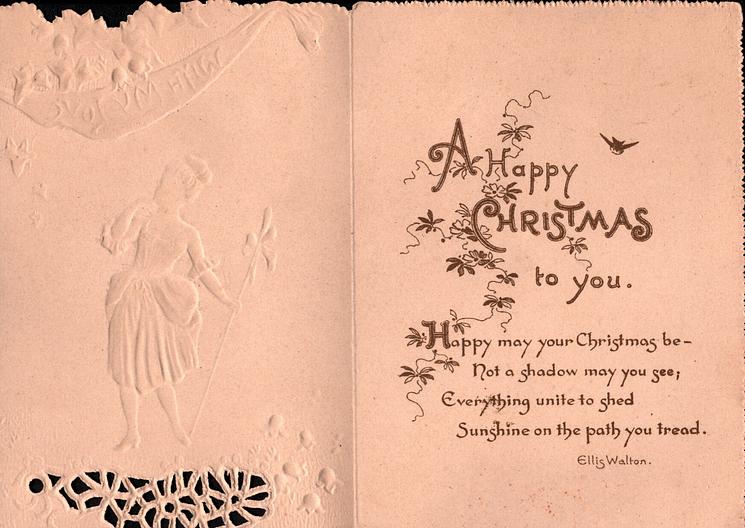 A Happy
Christmas
to you.
Happy may your Christmas be-
Not a shadow may you see;
Everything unite to shed
Sunshine on the path you tread.
Ellis Walton.